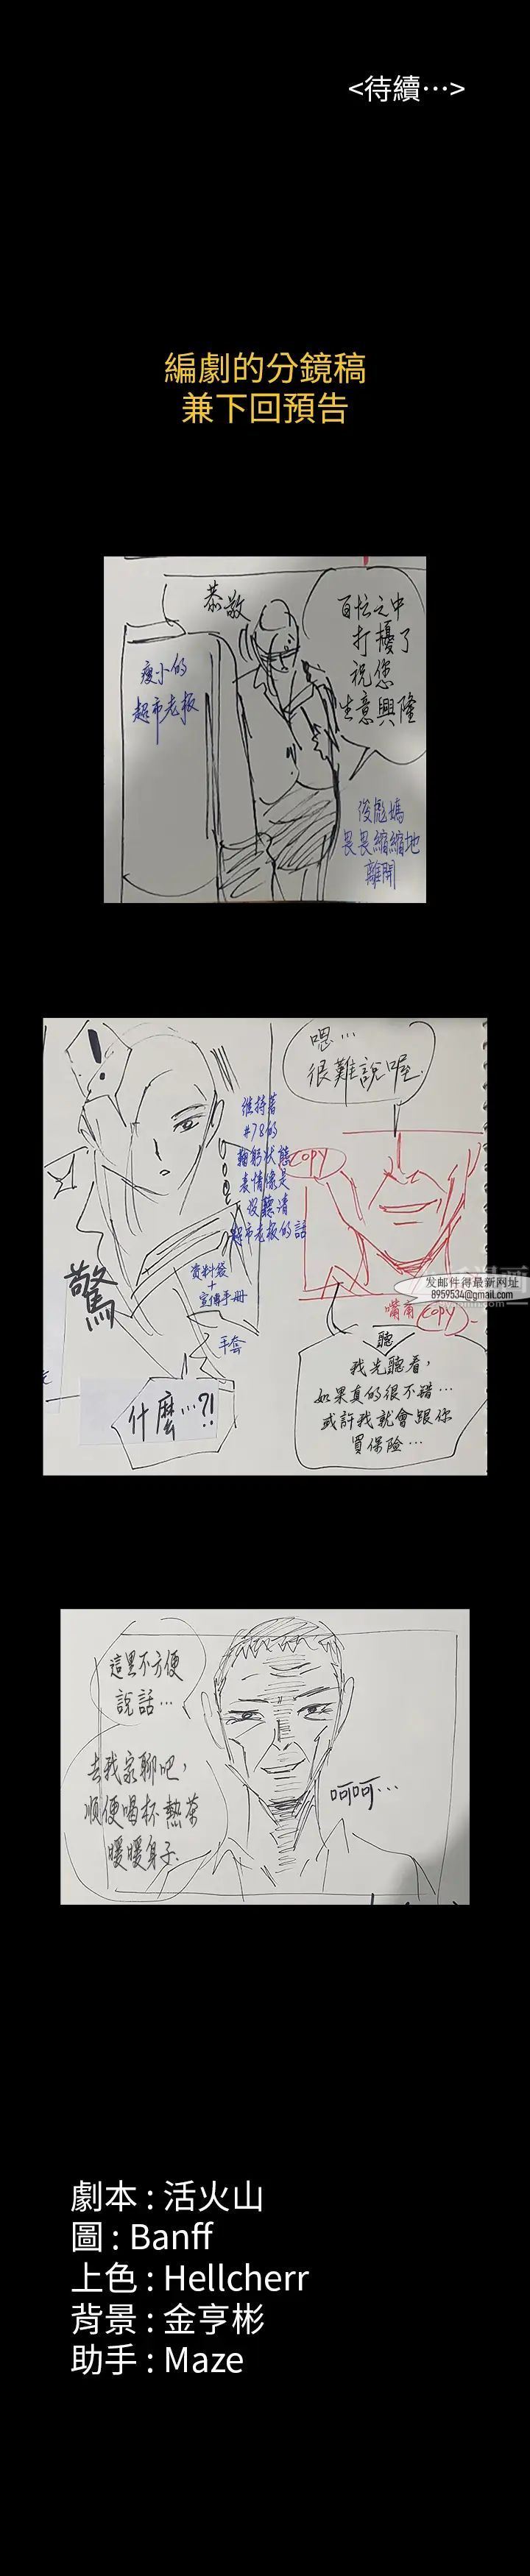 <待續…>
編劇的分鏡稿
兼下回預告
恭敬
百忙之中
打擾了
祝您
生意興隆
瘦小的
超市老板
俊彪媽
畏畏縮縮地
離開
嗯…
很難說喔.
!
維持著
#78的
鞠躬狀態
表情像是
沒聽清
超市老板的話
COPY
驚
资料袋
+
宣傳手冊
手套
什麼…?!
发邮件得最新网址
8959534@gmail.com
嘴有 COPY
聽
我先聽看,
如果真的很不錯…
或許我就會跟你
買保險…
這里不方便
說話…
去我家聊吧,
順便喝杯熱茶
暖暖身子.
呵呵…
劇本 : 活火山
圖 : Banff
上色 : Hellcherr
背景 : 金亨彬
助手 : Maze